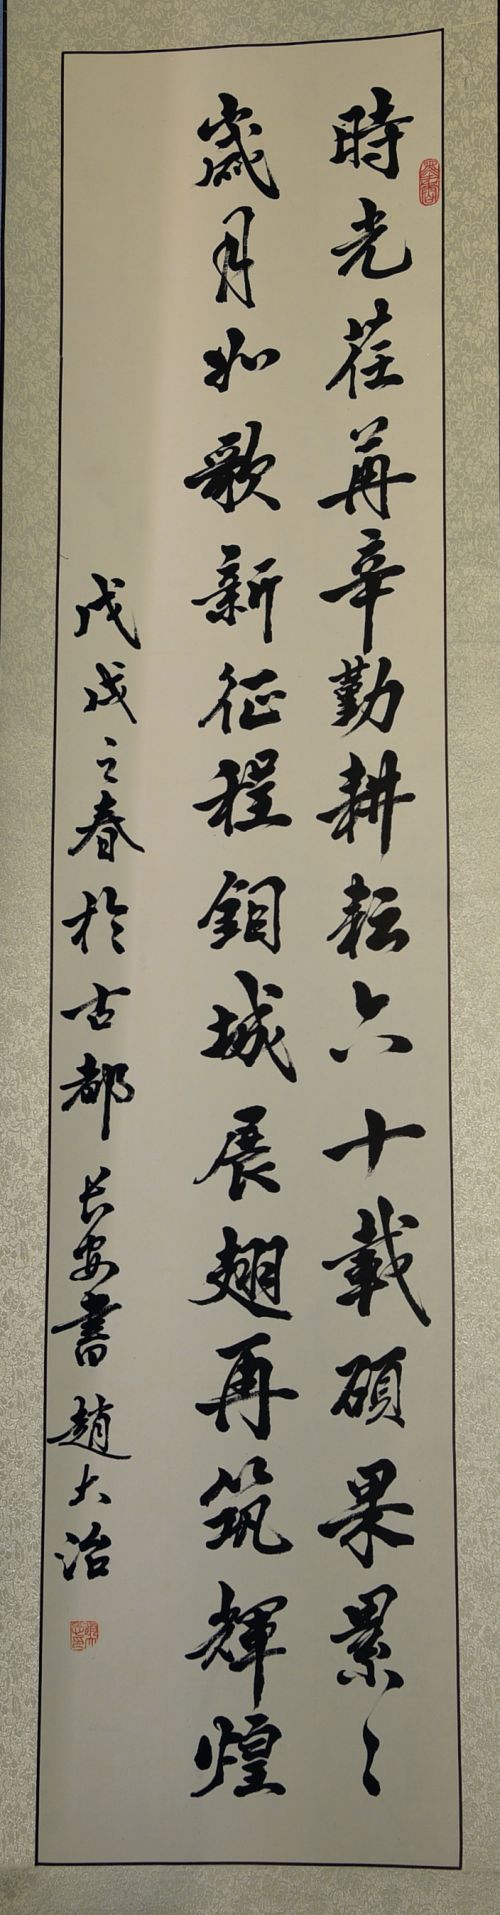 時光荏苒辛勤耕耘六十載碩果累〻
歲月如歌新征程鉬城展翅再筑輝煌
戊戌之春於古都長安書趙大治